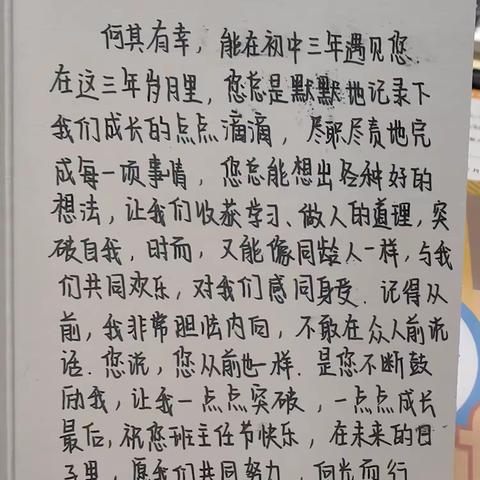 何其有幸，能在初中三年遇见您.
在这三年岁月里，您总是默默地记录下
我们成长的点点滴滴，尽职尽责地完
成每一项事情，您总能想出各种好的
想法，让我们收获学习、做人的道理，突
破自我，时而，又能像同龄人一样，与我
们共同欢乐，对我们感同身受.记得从
前，我非常胆怯内向，不敢在众人前说
话.您说，您从前也一样.是您不断鼓
励我，让我一点点突破，一点点成长
最后，祝您班主任节快乐，在未来的日
子里，愿我们共同努力，向光而行